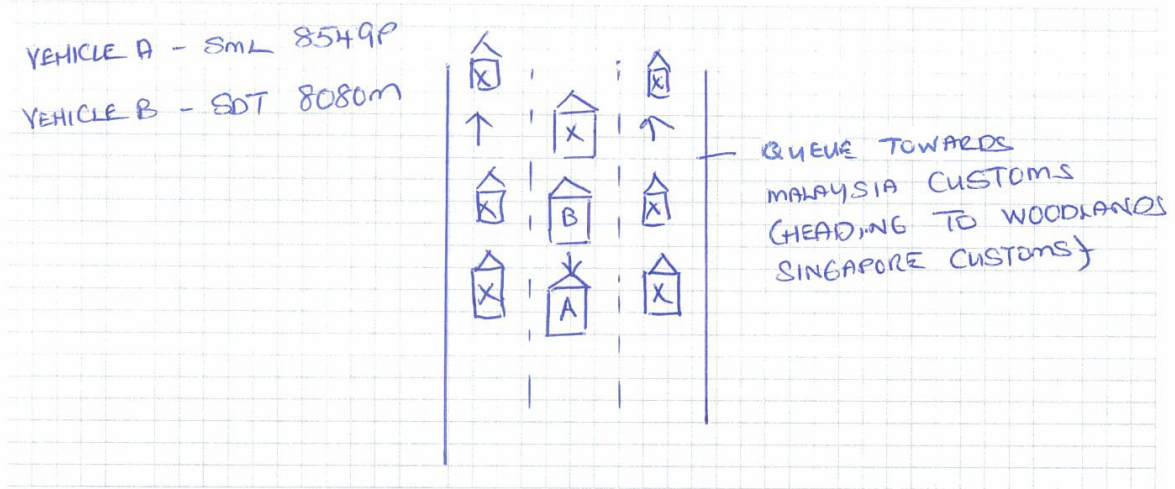 VEHICLE A - SML 8549P
VEHICLE B - SDT 8080M
X
X
X
X
X
B
X
X
A
X
QUEUE TOWARDS
MALAYSIA CUSTOMS
(HEADING TO WOODLANDS
SINGAPORE CUSTOMS)